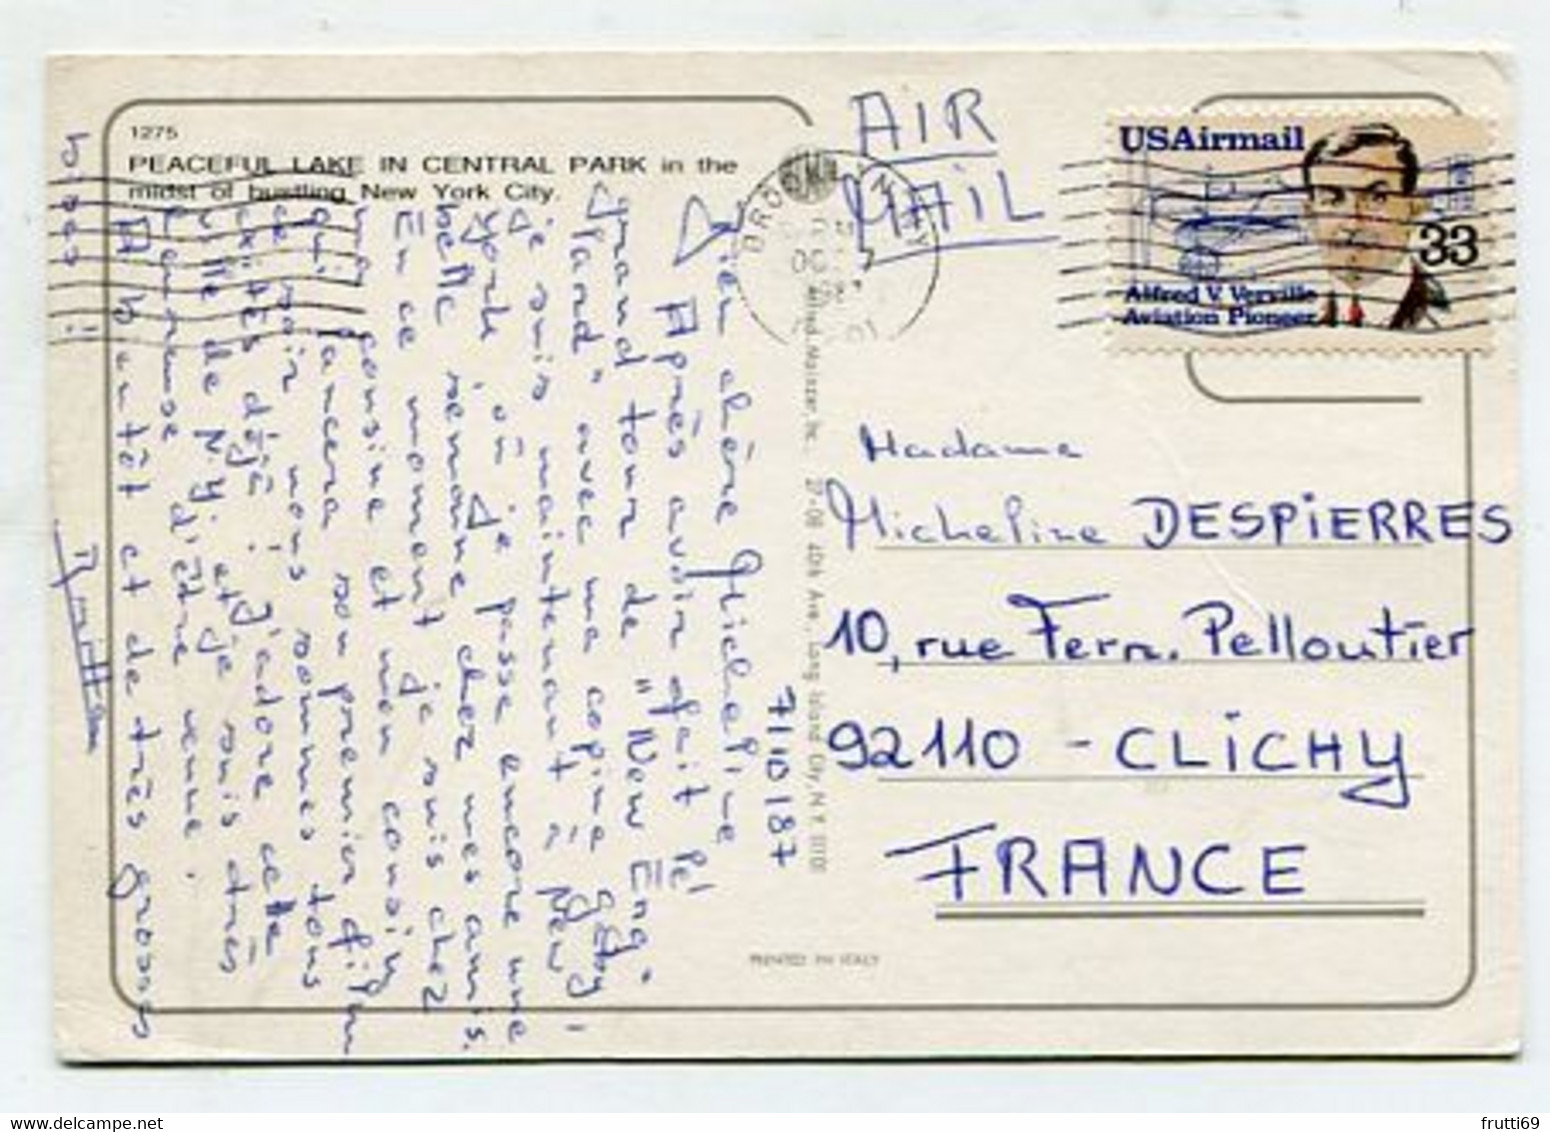 1275
PEACEFUL LAKE IN CENTRAL PARK in the
midst of bustling New York City.
AIR
MAIL
USAirmail
33
Alfred V. Verville
Aviation Pioneer
BROOKLYN
7/10/87
chère Micheline
Après avoir fait le
grand tour de "New Eng-
land" avec ma copine Gaby,
je suis maintenant à New
York, où je passe encore une
belle semaine chez mes amis.
En ce moment je suis chez
ma cousine et mon cousin
qui lancera son premier film
ce soir nous sommes tous
excités déjà! J'adore cette
ville de N.Y. et je suis très
heureuse d'être venue.
A bientôt et de très grosses
bises!
Alfred Mainzer, Inc. 27-08 40th Ave., Long Island City, N.Y. 11101
PRINTED IN ITALY
Madame
Micheline DESPIERRES
10, rue Fern. Pelloutier
92110 - CLICHY
FRANCE
frutti69